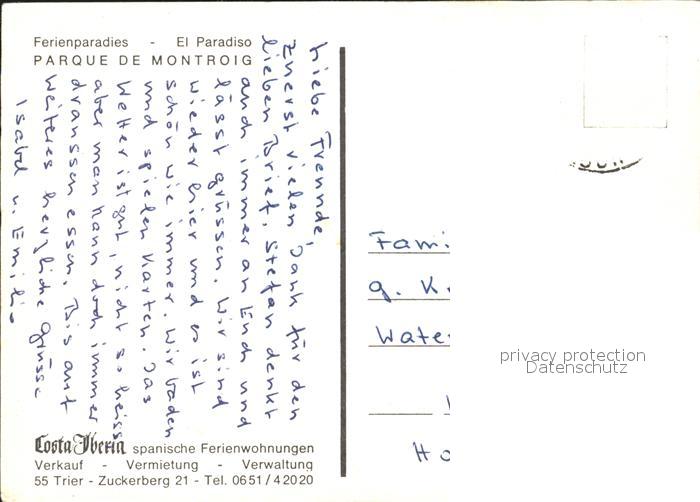 Ferienparadies - El Paradiso
PARQUE DE MONTROIG
Liebe Freunde,
Zuerst vielen Dank für den
lieben Brief. Stefan denkt
auch immer an Euch und
lässt grüssen. Wir sind
wieder hier und es ist
schön wie immer. Wir baden
und spielen Karten. Das
Wetter ist gut, nicht so heiss
aber man kann doch immer
draussen essen. Bis auf
weiteres herzliche Grüsse
Isabel u. Emilio
Costa Iberia spanische Ferienwohnungen
Verkauf - Vermietung - Verwaltung
55 Trier - Zuckerberg 21 - Tel. 0651/42020
Fami
G. K
Wate
Ho
privacy protection
Datenschutz